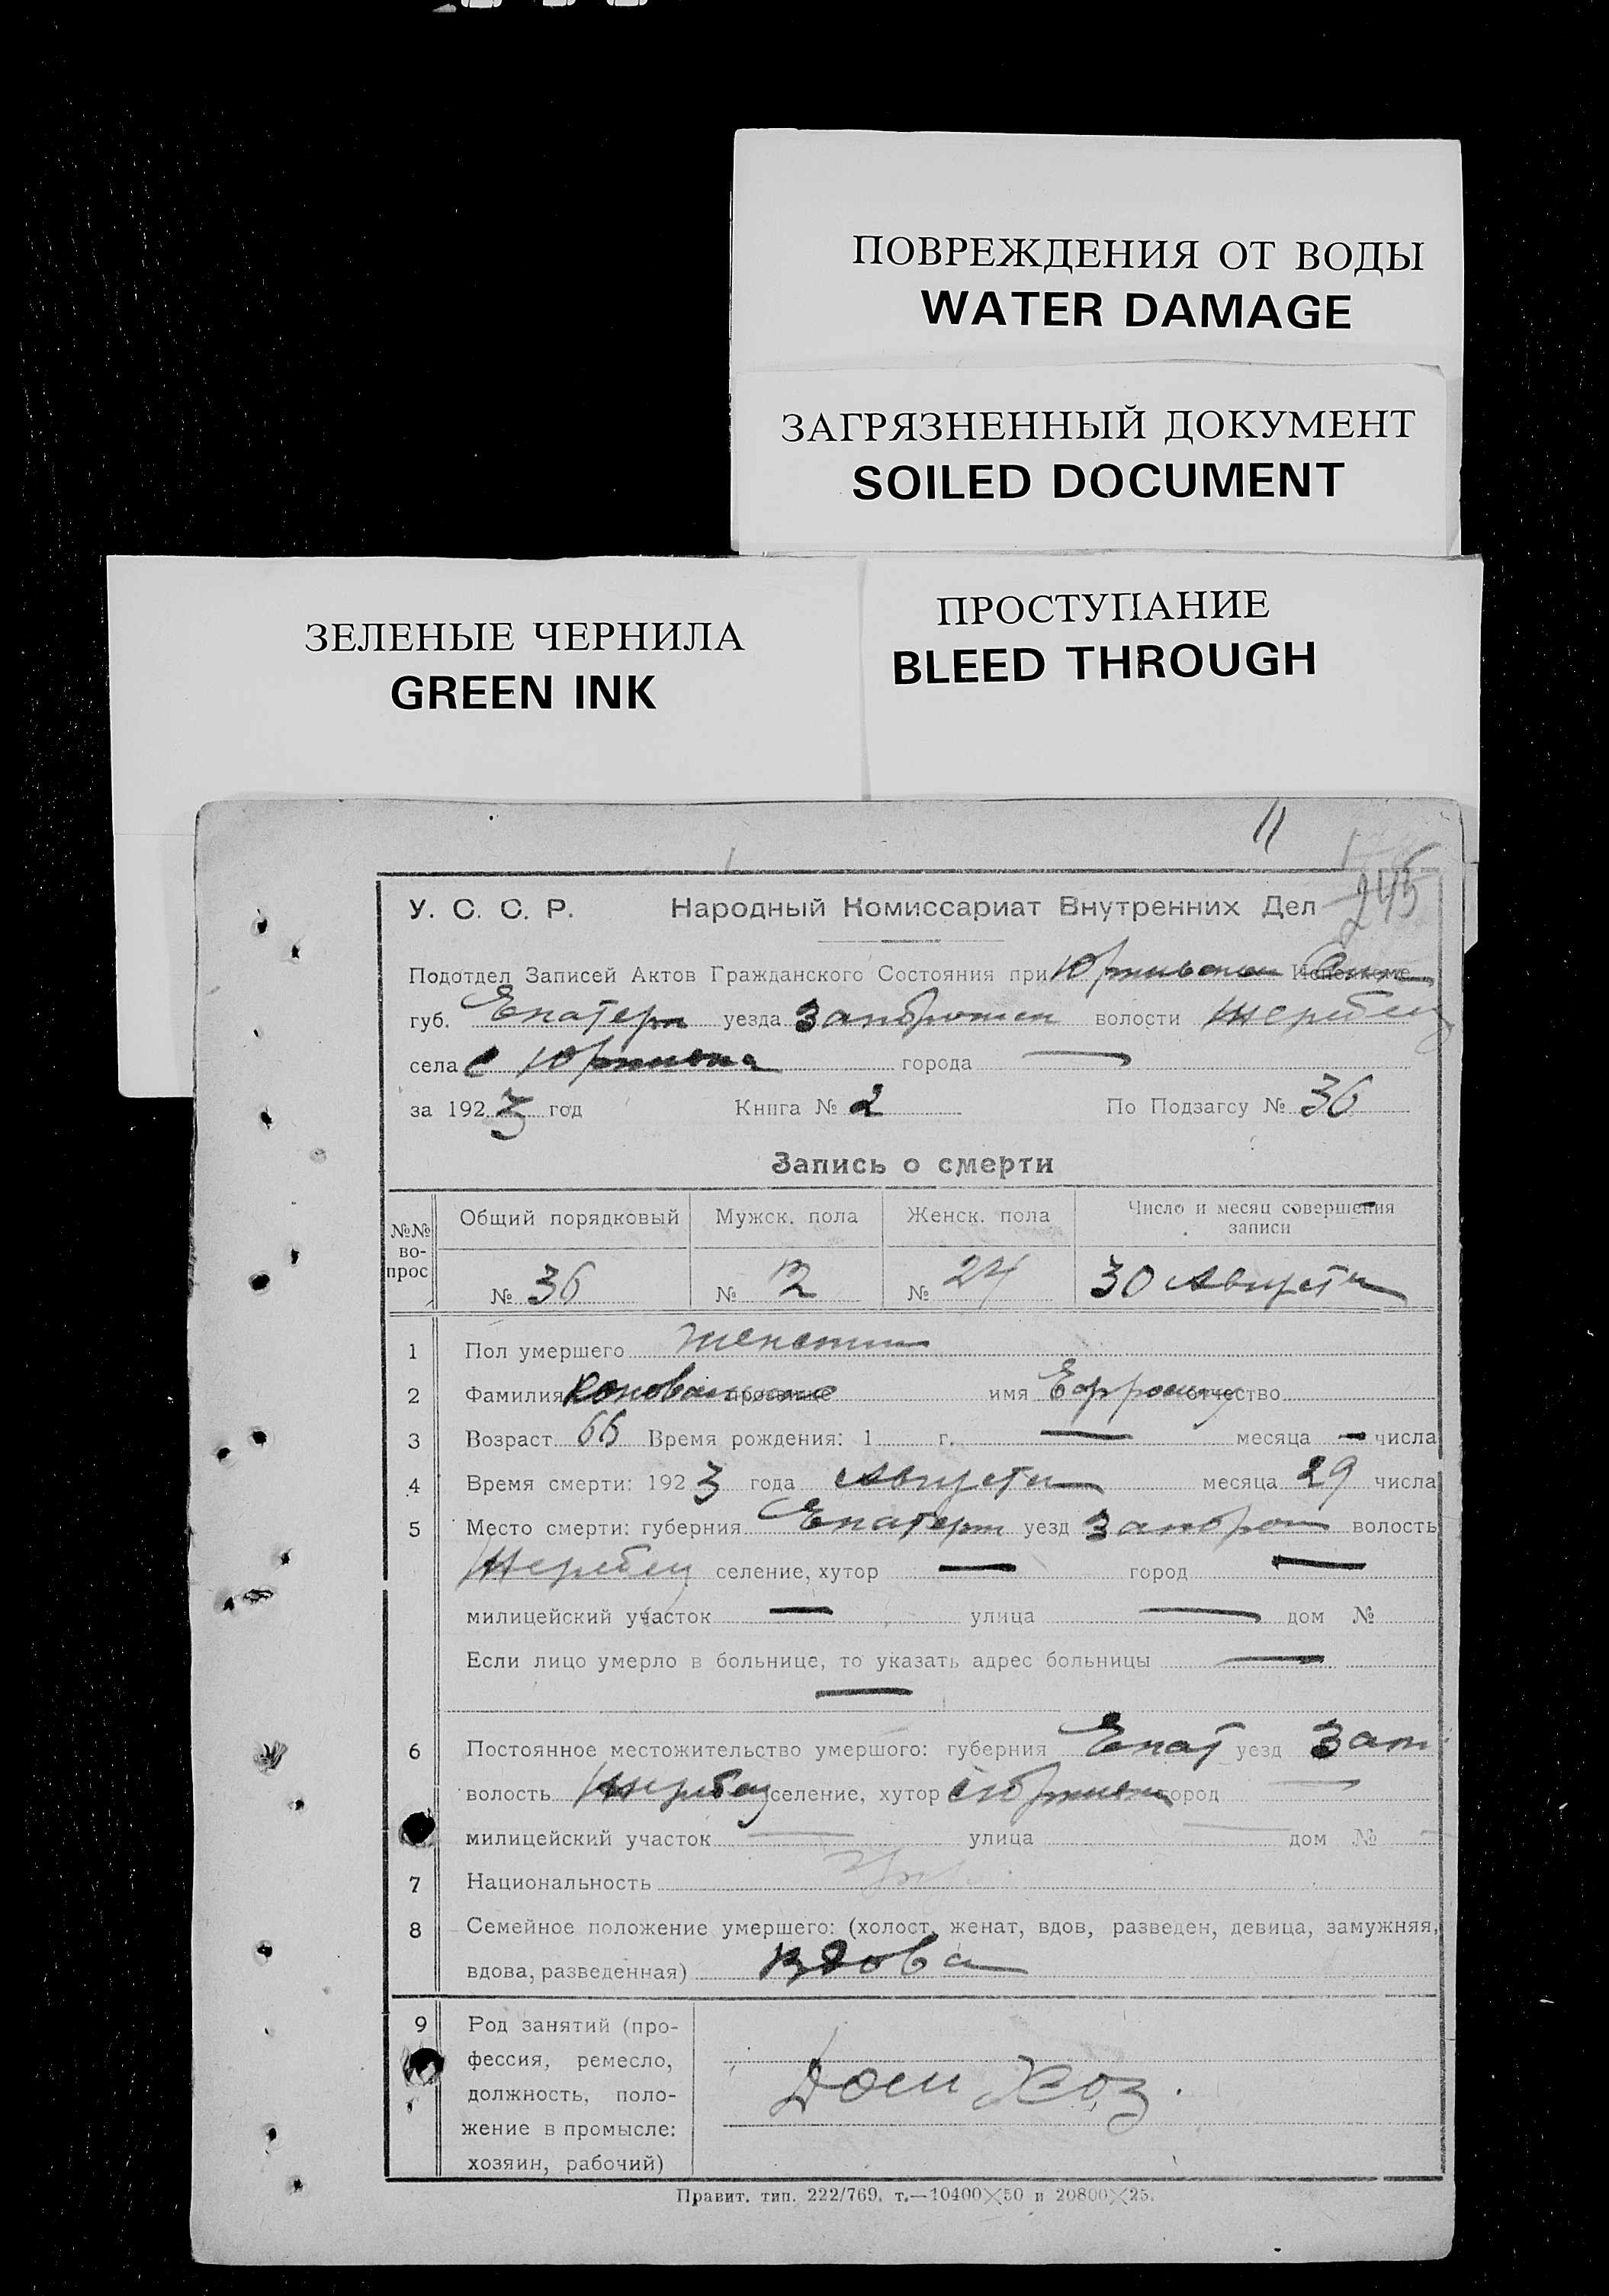 ПОВРЕЖДЕНИЯ ОТ ВОДЫ
WATER DAMAGE
ЗАГРЯЗНЕННЫЙ ДОКУМЕНТ
SOILED DOCUMENT
ЗЕЛЕНЫЕ ЧЕРНИЛА
GREEN INK
ПРОСТУПАНИЕ
BLEED THROUGH
11
245
У. С. С. Р. Народный Комиссариат Внутренних Дел
Подотдел Записей Актов Гражданского Состояния при Исполкоме
губ. Екатерн уезда Запорожск волости Жеребец
села города —
за 1923 год Книга № 2 По Подзагсу № 36
Запись о смерти
№№ во-прос Общий порядковый Мужск. пола Женск. пола Число и месяц совершения записи
№ 36 № 12 № 24 30 Августа
1 Пол умершего Женский
2 Фамилия прозвище имя отчество
3 Возраст 66 Время рождения: 1 г. — месяца — числа
4 Время смерти: 1923 года Августа месяца 29 числа
5 Место смерти: губерния Екатерн уезд Запорож волость
Жеребец селение, хутор — город —
милицейский участок — улица — дом №
Если лицо умерло в больнице, то указать адрес больницы —
—
6 Постоянное местожительство умершого: губерния Екат уезд Зап
волость Жеребец селение, хутор город —
милицейский участок — улица — дом № —
7 Национальность Укр.
8 Семейное положение умершего: (холост, женат, вдов, разведен, девица, замужняя,
вдова, разведенная) Вдова
9 Род занятий (про-
фессия, ремесло,
должность, поло- Дом Хоз.
жение в промысле:
хозяин, рабочий)
Правит. тип. 222/769. т.—10400×50 и 20800×25.